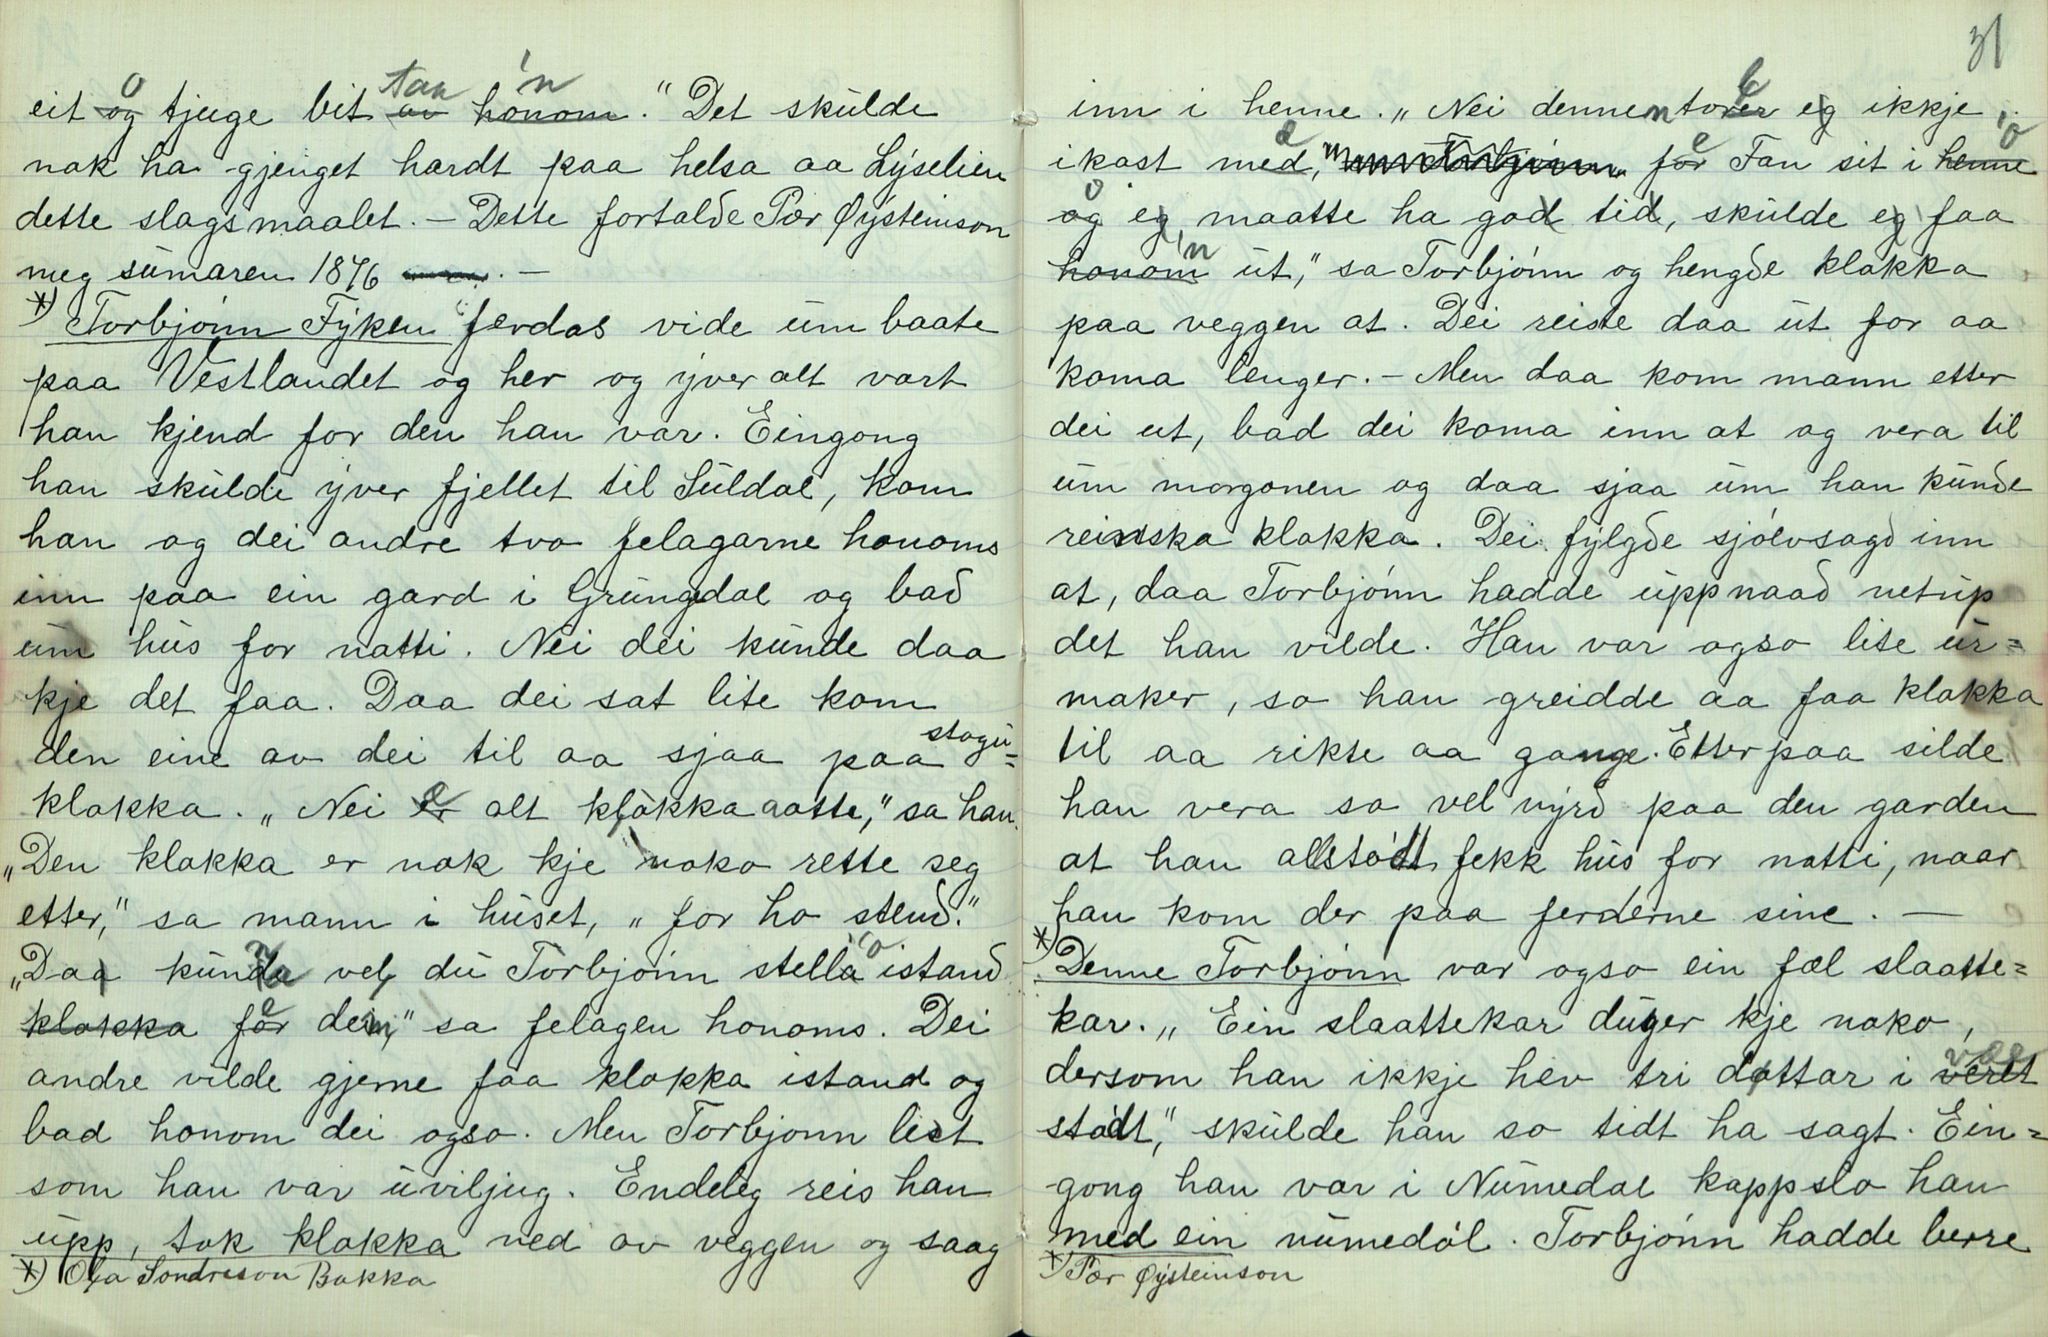 eit og o tjuge bit av tan honom 'n." Det skulde
nok ha gjenget hardt paa helsa aa Lyselien
dette slagsmaalet. — Dette fortalde Pær Øysteinson
meg sumaren 1876 . —
*) Torbjónn Fyken ferdas vide um baate
paa Vestlandet og her og yver alt vart
han kjend for den han var. Eingong
han skulde yver fjellet til Suldal, kom
han og dei andre tvo felagarne honoms
inn paa ein gard i Grungdal og bad
um hus for natti. Nei dei kunde daa
kje det faa. Daa dei sat lite kom
den eine av dei til aa sjaa paa stogu=
klokka. „Nei er e alt klokka aatte," sa han.
„Den klokka er nok kje noko rette seg
etter," sa mann i huset, „for ho stend."
„Daa kunde vel du Torbjónn stella 'o istand
klokka for e dei," sa felagen honoms. Dei
andre vilde gjerne faa klokka istand og
bad honom dei ogso. Men Torbjonn lest
som han var uviljug. Endeleg reis han
upp, tok klokka ned av veggen og saag
*) Olga Sondreson Bakka
31
inn i henne. „Nei denne torer eg ikkje
ikast med, for e Fan sit i henne 'o
og o eg maatte ha god tid, skulde eg faa
honom 'n ut," sa Torbjónn og hengde klokka
paa veggen at. Dei reiste daa ut for aa
koma lenger. — Men daa kom mann etter
dei ut, bad dei koma inn at og vera til
um morgonen og daa sjaa um han kunde
reinska klokka. Dei fylgde sjólvsagd inn
at, daa Torbjónn hadde uppnaad netup
det han vilde. Han var ogso lite ur=
maker, so han greidde aa faa klokka
til aa rikte aa gange. Etterpaa silde
han vera so vel nyrd paa den garden
at han allstódt fekk hus for natti, naar
han kom der paa ferderne sine. —
*) Denne Torbjónn var ogso ein fæl slaatte=
kar. „Ein slaattekar duger kje noko,
dersom han ikkje hev tri dottar i veret
stódt," skulde han so tidt ha sagt. Ein=
gong han var i Numedal kappslo han
med ein numedól. Torbjónn hadde berre
*) Pær Øysteinson